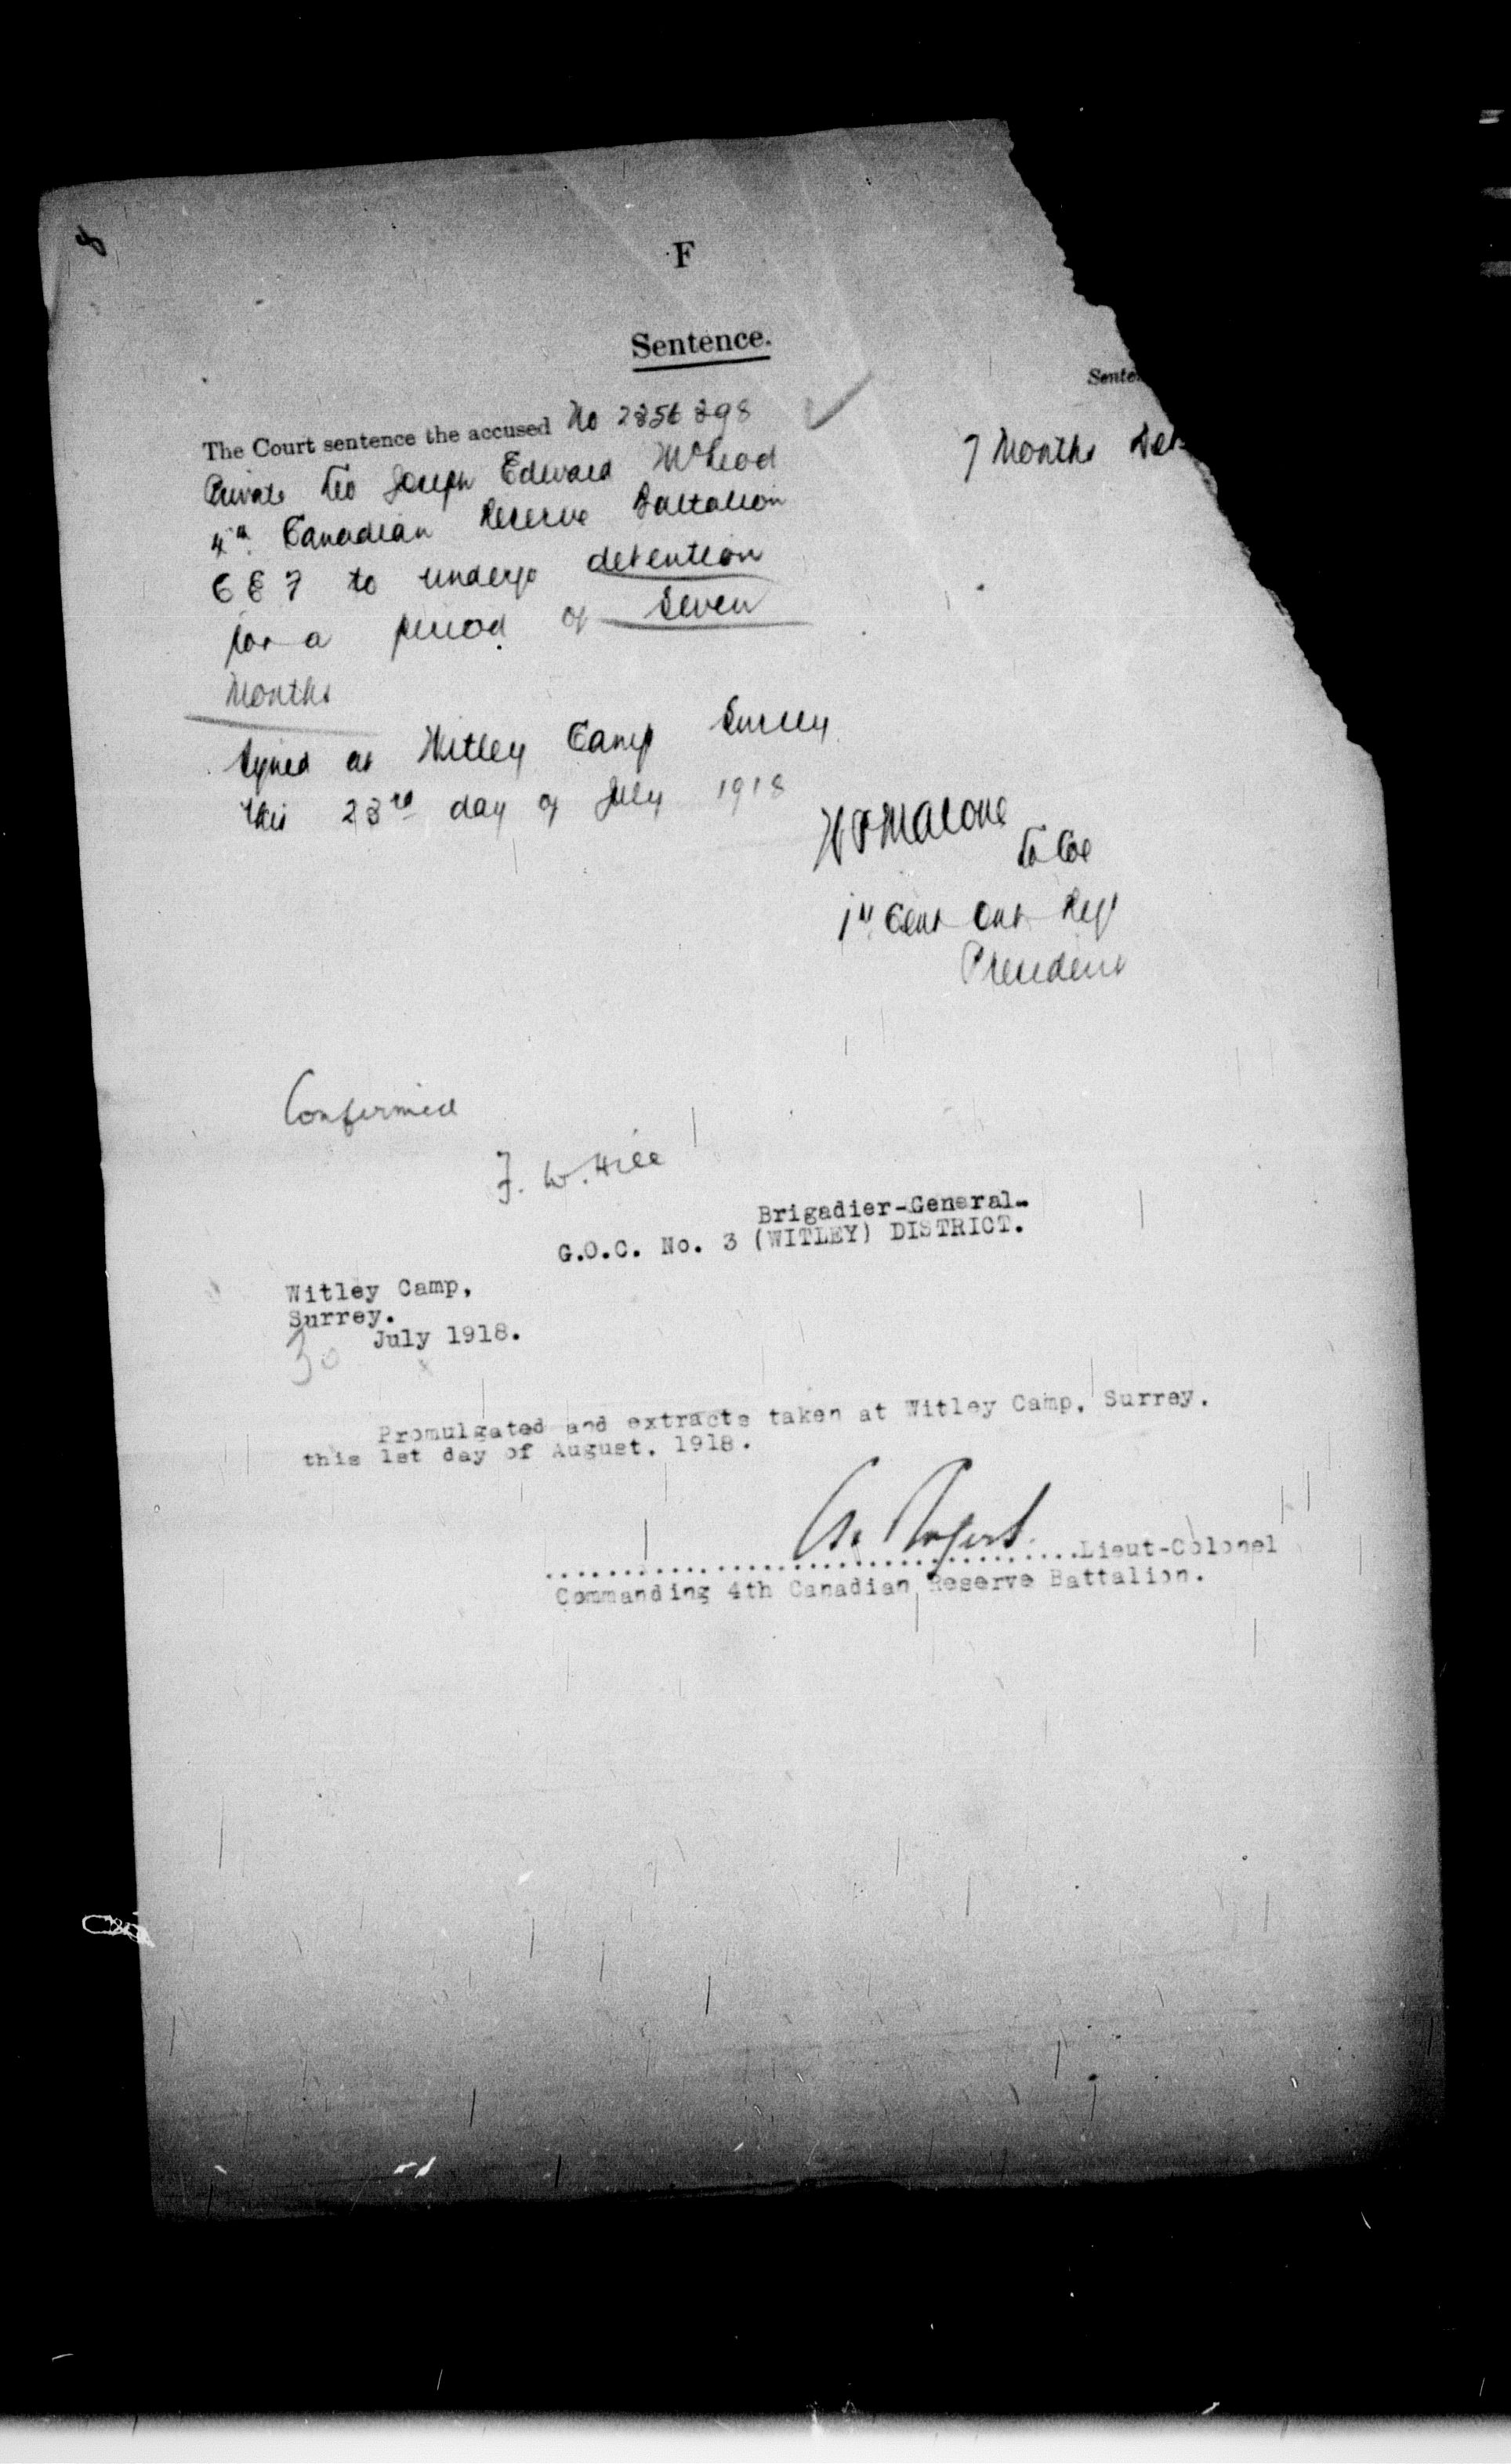 8
F
Sentence.
Sente
The Court sentence the accused No 2356398
7 Months Det
Private Leo Joseph Edward McLeod
4th Canadian Reserve Battalion
C E F to undergo detention
for a period of Seven
Months
Signed at Witley Camp Surrey
this 23rd day of July 1918
Malone
Lt Col
1st Cent Ont Regt
President
Confirmed
F. W. Hill
Brigadier-General-
G.O.C. No. 3 (WITLEY) DISTRICT.
Witley Camp,
Surrey.
30 July 1918.
Promulgated and extracts taken at Witley Camp, Surrey.
this 1st day of August, 1918.
Lieut-Colonel
Commanding 4th Canadian Reserve Battalion.